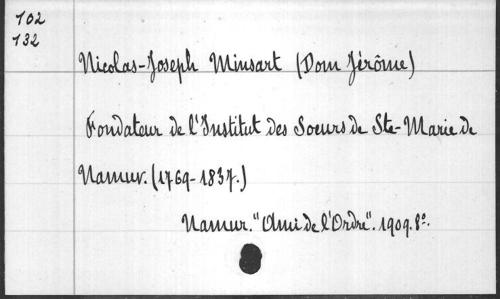 102
132
Nicolas-Joseph Minsart (Dom Jérôme)
Fondateur de l'Institut des Soeurs de Ste-Marie de
Namur. (1769-1837.)
Namur. "Ami de l'Ordre". 1909. 8º.